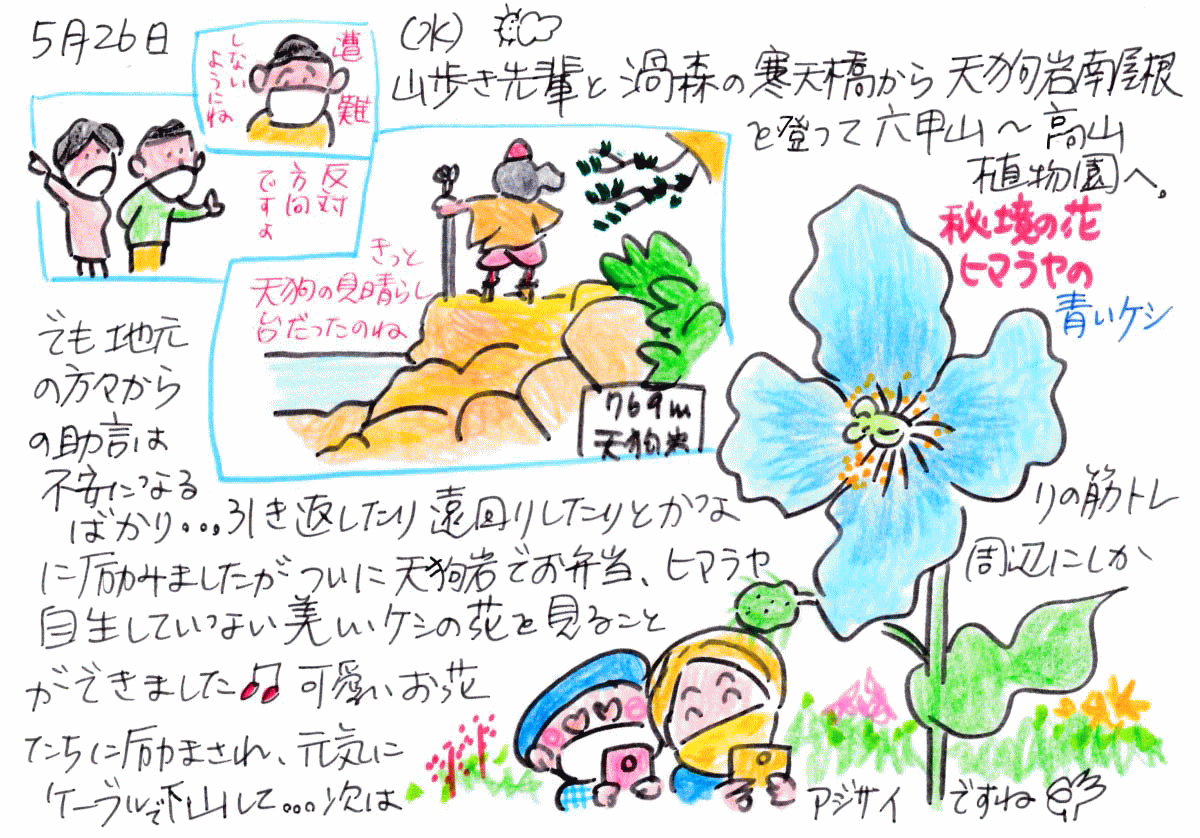 5月26日 (水)
山歩き先輩と渦森の寒天橋から天狗岩南尾根
を登って六甲山～高山
植物園へ。
遭難
しない
ようにね
反対
方向
ですよ
きっと
天狗の見晴らし
台だったのね
769m
天狗岩
秘境の花
ヒマラヤの
青いケシ
でも地元
の方々から
の助言は
不安になる
ばかり...引き返したり遠回りしたりとかなりの筋トレ
に励みましたがついに天狗岩でお弁当、ヒマラヤ周辺にしか
自生していない美しいケシの花を見ること
ができました♫可愛いお花
たちに励まされ、元気に
ケーブルで下山して...次はアジサイですね